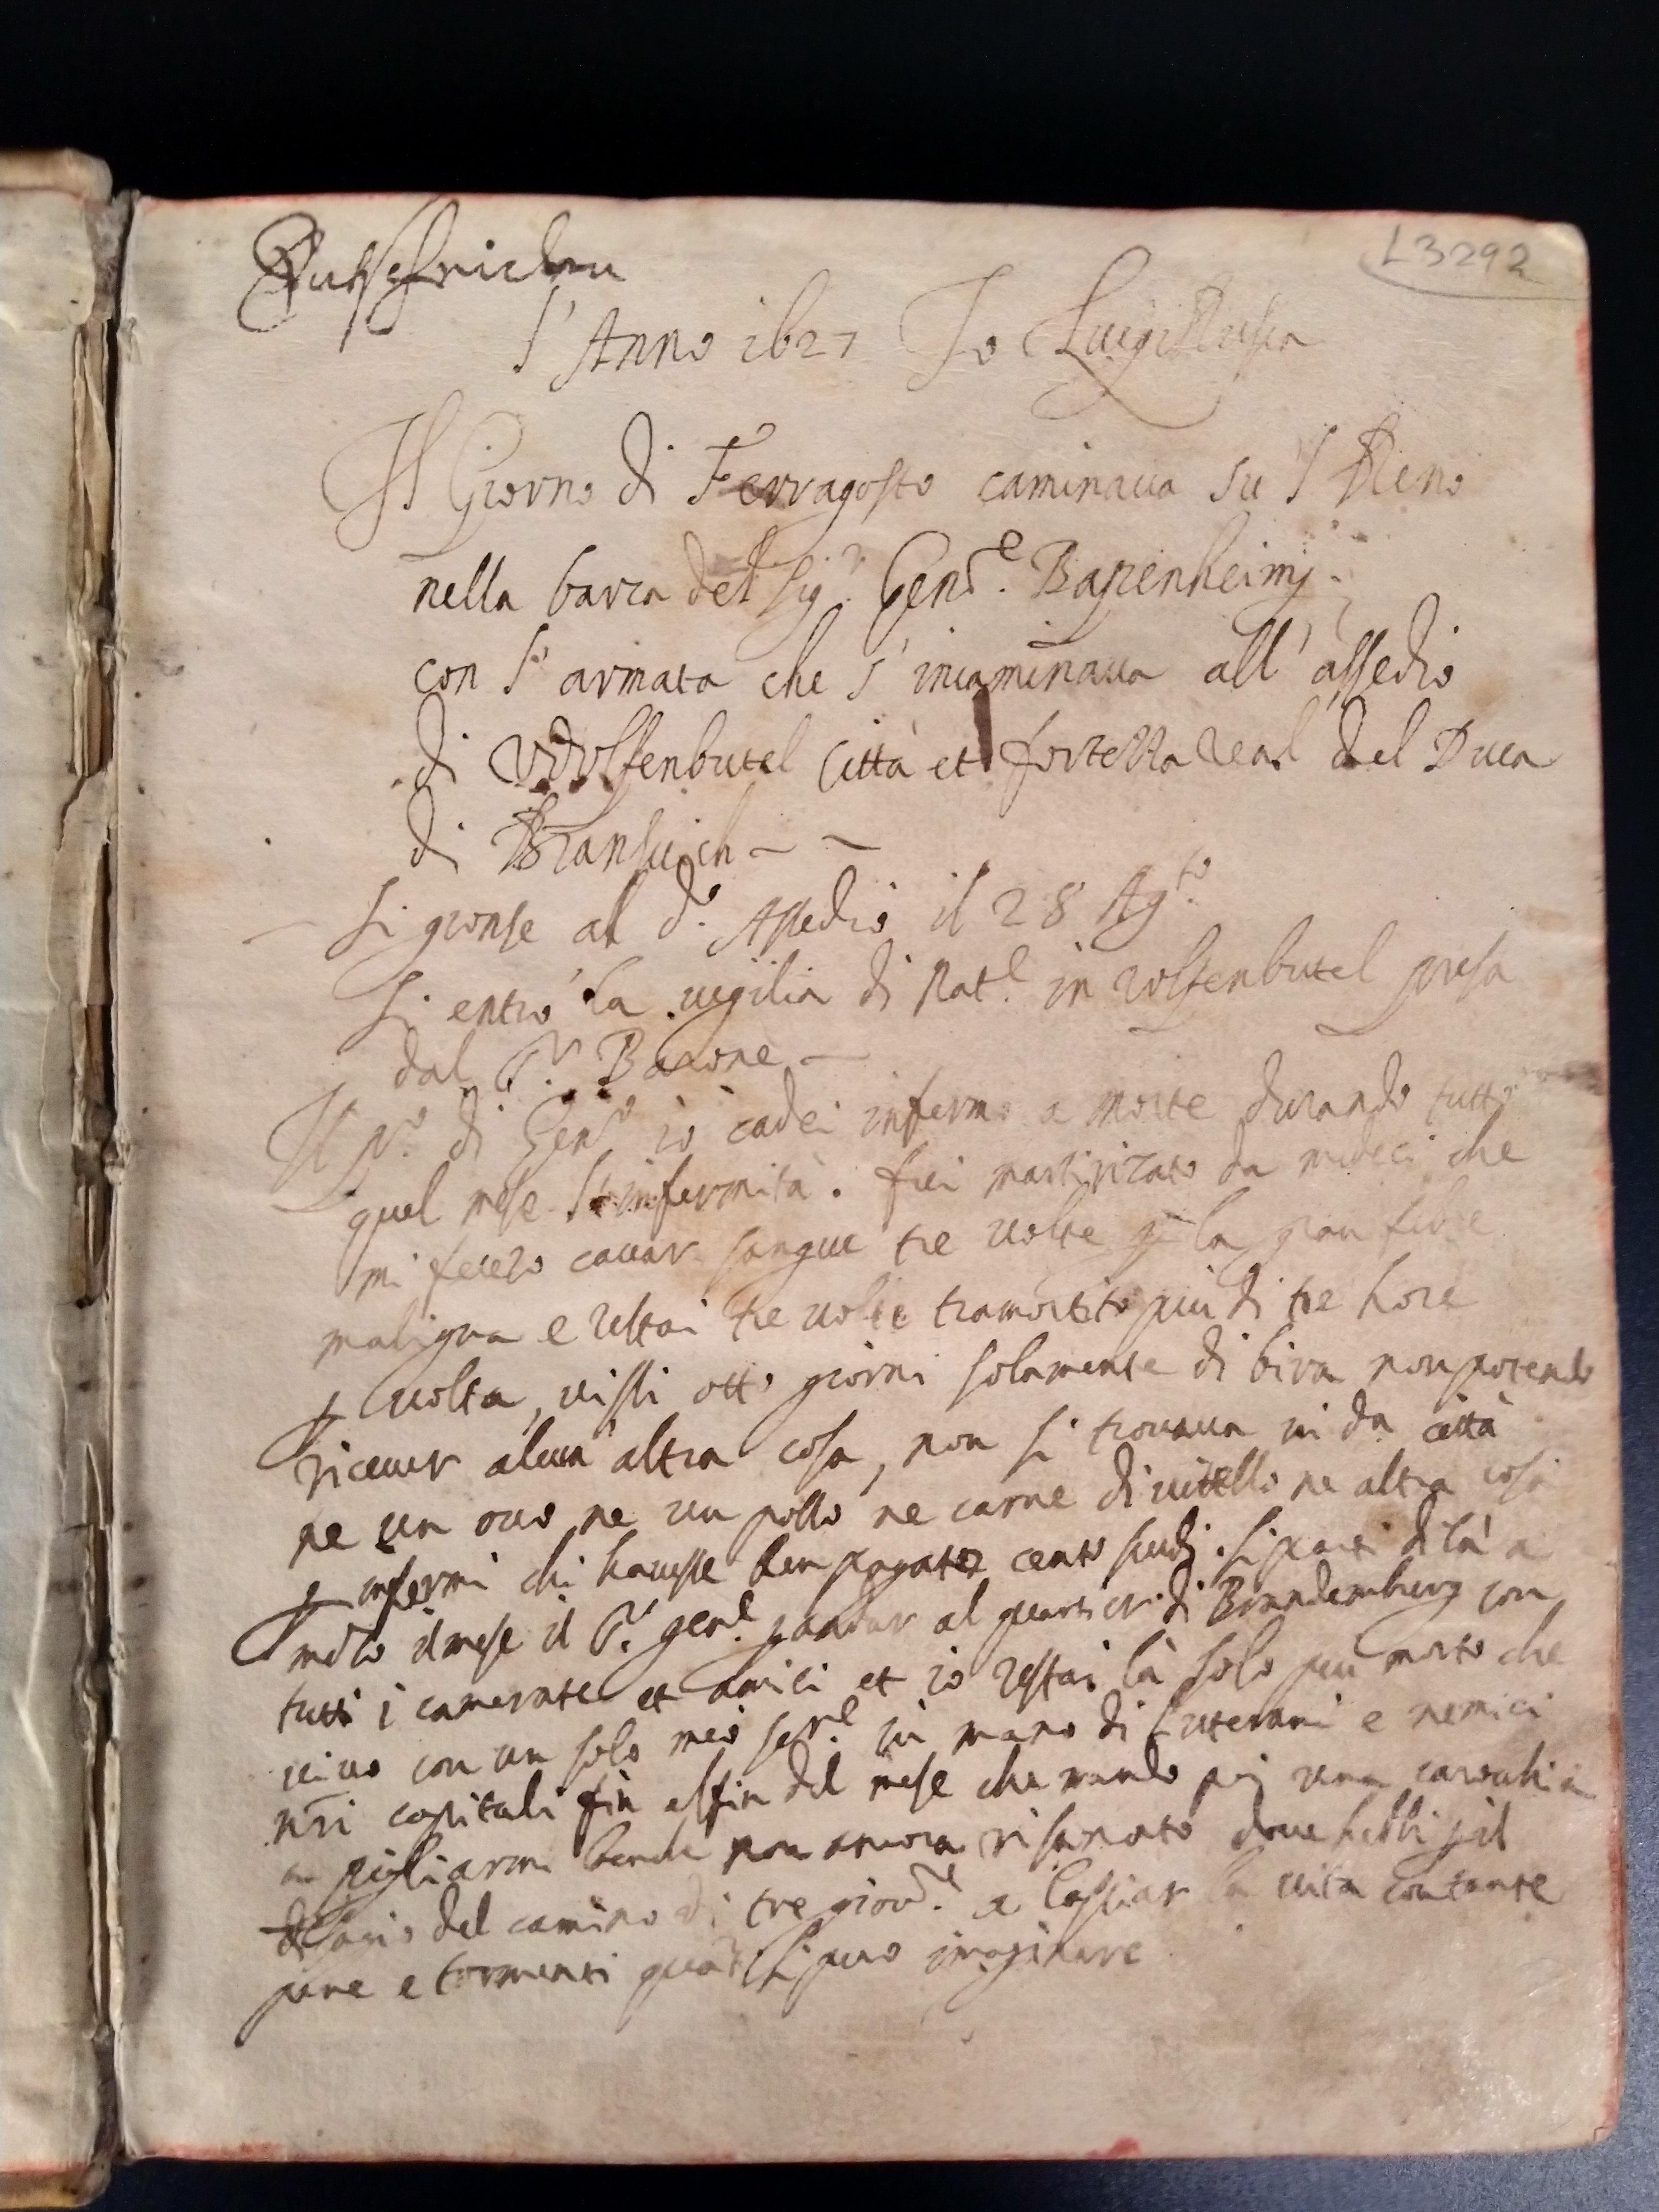 L3292
l'Anno 1627 Io Luigi Rusca
Il Giorno di Ferragosto caminaua su l Reno
nella barca del Sig.r Gen.le Bapenheimj.
con l'armata che s'incaminaua all'assedio
di Wolfenbutel Città et fortezza real del Duca
di Bransuich
si gionse al d.o Assedio il 28 Ag.to
si entrò la uigilia di Nat.l in Wolfenbutel presa
dal S.r Barone
Il p.o di Gen.o iò cadei infermo a morte durando tutto
quel mese l'infermità. fui martirizato da medeci che
mi fecero cauar sangue tre uolte p la gran febre
maligna e restai tre uolte tramortito piu di tre hore
p uolta, uissi otto giorni solamente di bira non potendo
riceuer alcun'altra cosa, non si trouaua in da città
ne un ouo ne un pollo ne carne di uitello ne altra cosa
p infermi chi hauesse ben pagato cento scudi. si parti di là a
mezo il mese il S.r gen.l p andar al quartier di Brandemburg con
tutti i camerate et amici et io restai là solo piu morto che
uiuo con un solo meo ser.re in mano di Luterani e nemici
nri capitali fin alfin del mese che mandò poi una carochia
a pigliarmi benche non ancora risanato doue hebbi p il
disagio del camino di tre giorn.te a lassiar la uita con tante
pene e tormenti quanti si puo imaginare